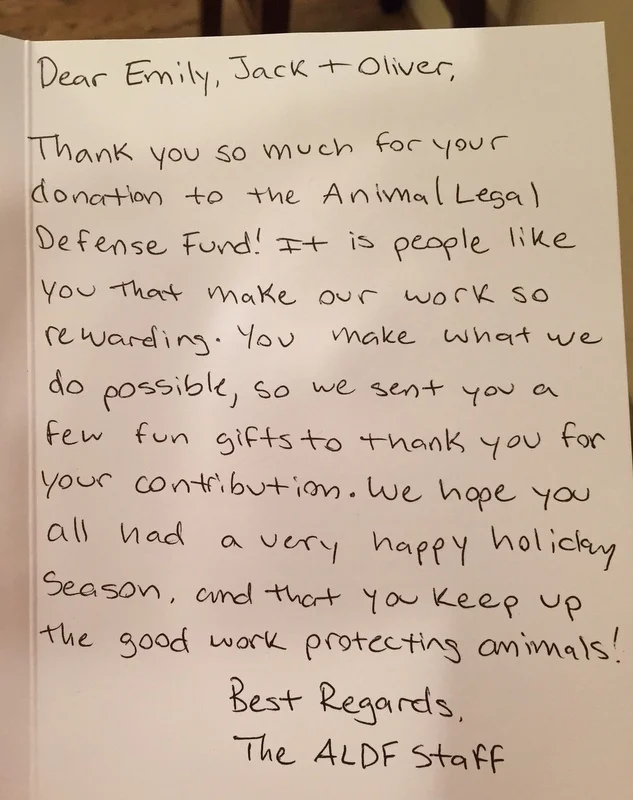 Dear Emily, Jack + Oliver,
Thank you so much for your
donation to the Animal Legal
Defense Fund! It is people like
you that make our work so
rewarding. You make what we
do possible, so we sent you a
few fun gifts to thank you for
your contribution. We hope you
all had a very happy holiday
season, and that you keep up
the good work protecting animals!
Best Regards,
The ALDF Staff